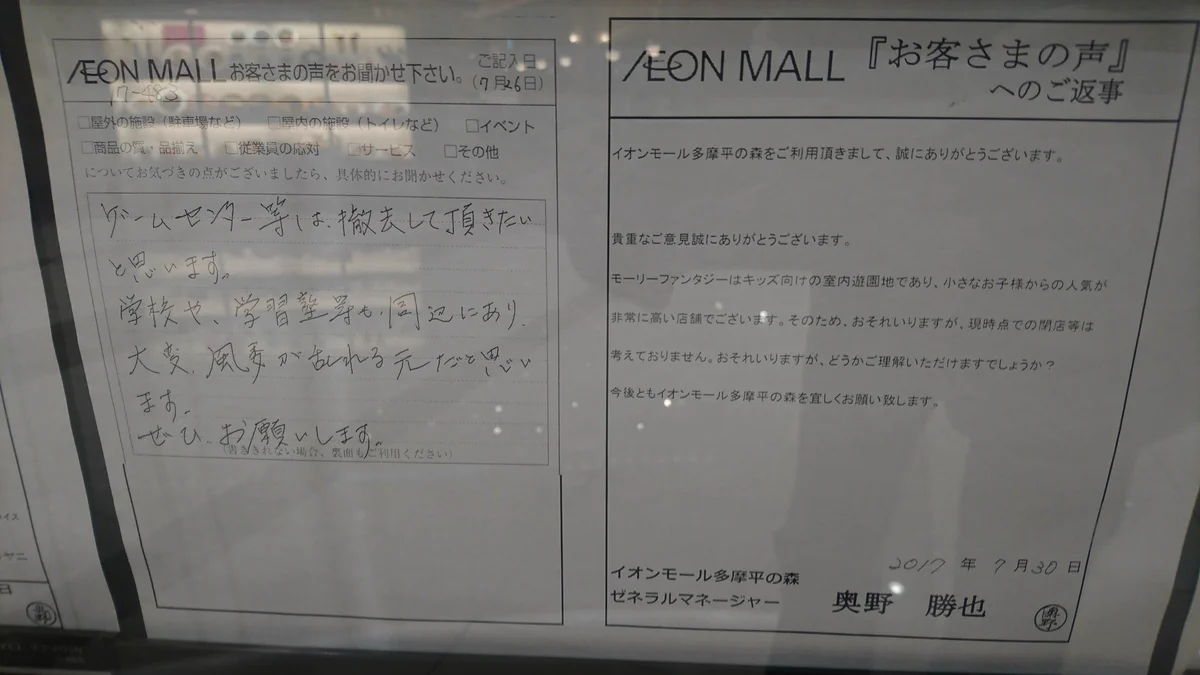 ÆON MALL お客さまの声をお聞かせ下さい。
ご記入日
(7月26日)
17-483
□屋外の施設(駐車場など) □屋内の施設(トイレなど) □イベント
□商品の質・品揃え □従業員の応対 □サービス □その他
についてお気づきの点がございましたら、具体的にお聞かせください。
ゲームセンター等は、撤去して頂きたい
と思います。
学校や、学習塾等も、周辺にあり、
大変、風紊が乱れる元だと思い
ます。
ぜひ、お願いします。
(書ききれない場合、裏面もご利用ください)
ÆON MALL 『お客さまの声』
へのご返事
イオンモール多摩平の森をご利用頂きまして、誠にありがとうございます。
貴重なご意見誠にありがとうございます。
モーリーファンタジーはキッズ向けの室内遊園地であり、小さなお子様からの人気が
非常に高い店舗でございます。そのため、おそれいりますが、現時点での閉店等は
考えておりません。おそれいりますが、どうかご理解いただけますでしょうか?
今後ともイオンモール多摩平の森を宜しくお願い致します。
2017 年 7 月 30 日
イオンモール多摩平の森
ゼネラルマネージャー 奥野 勝也
奥野